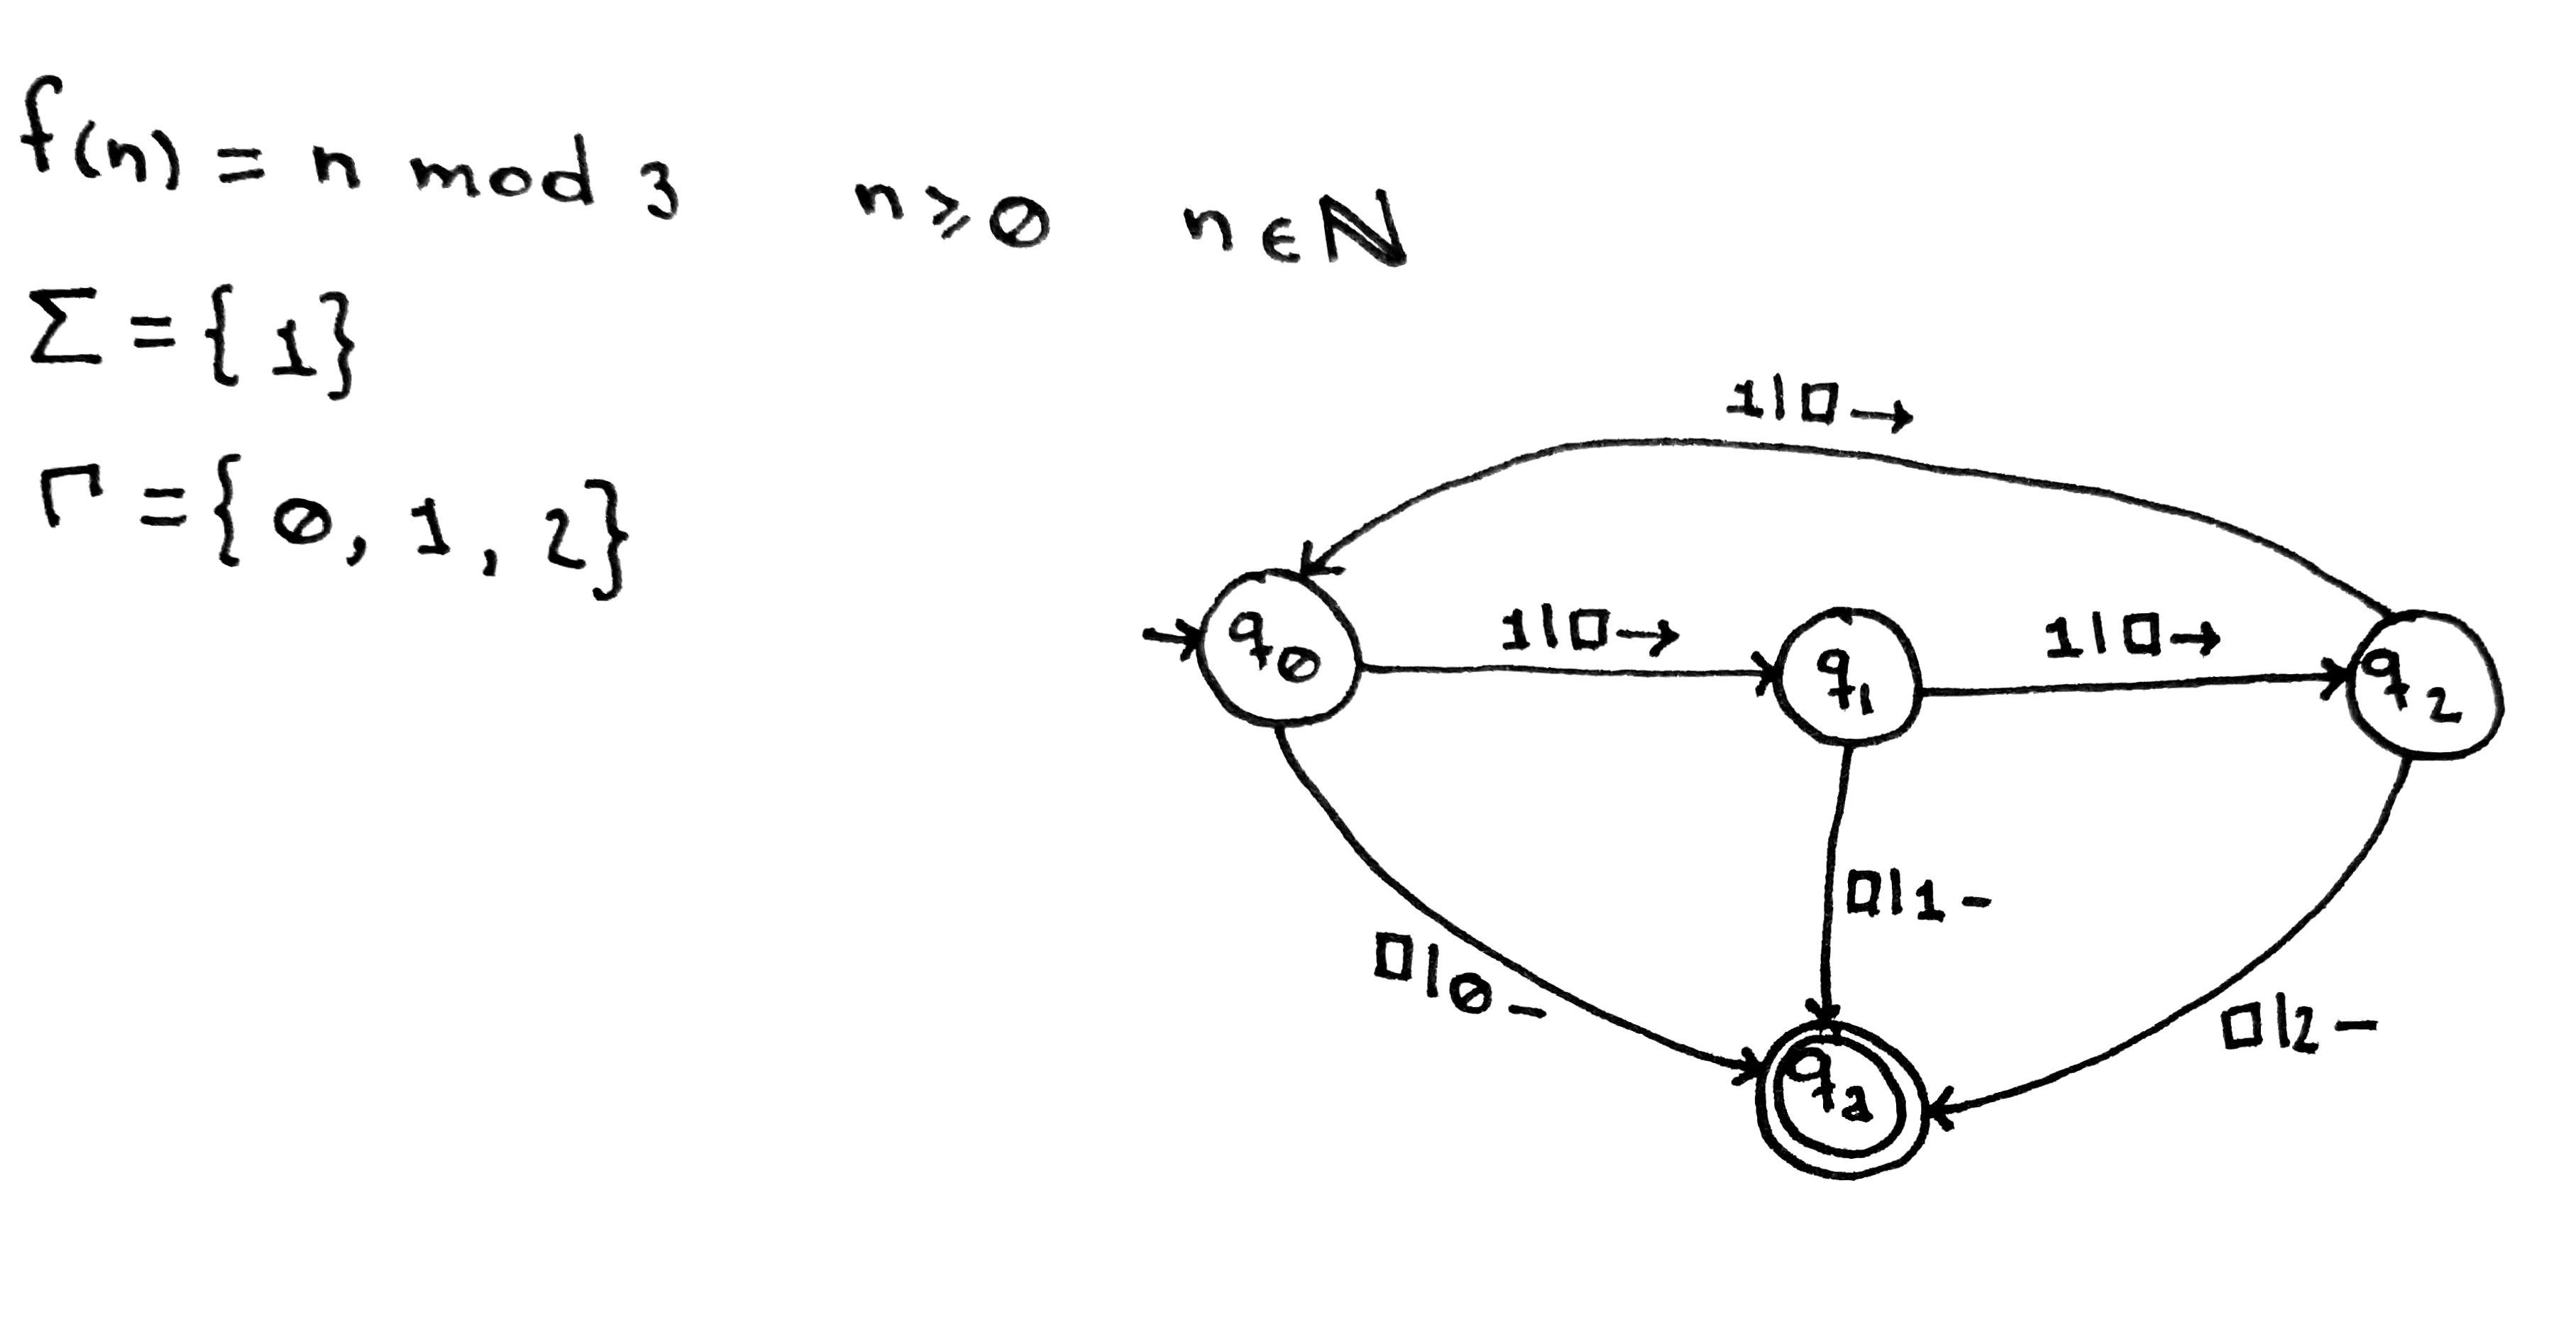 f(n) = n mod 3 n ⩾ 0 n ∈ ℕ
Σ = { 1 }
Γ = { 0, 1, 2 }
1|□→
q0
1|□→
q1
1|□→
q2
□|0 -
□|1 -
□|2 -
qa